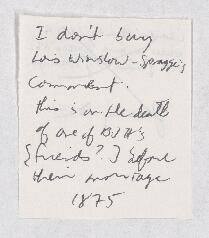 I don't buy
Lois Winslow-Spragge's
Comment.
This is on the death
of one of
{friends?} before
their marriage
1875